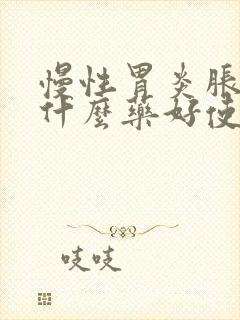 慢性胃炎脹
什麼藥好使
吱吱